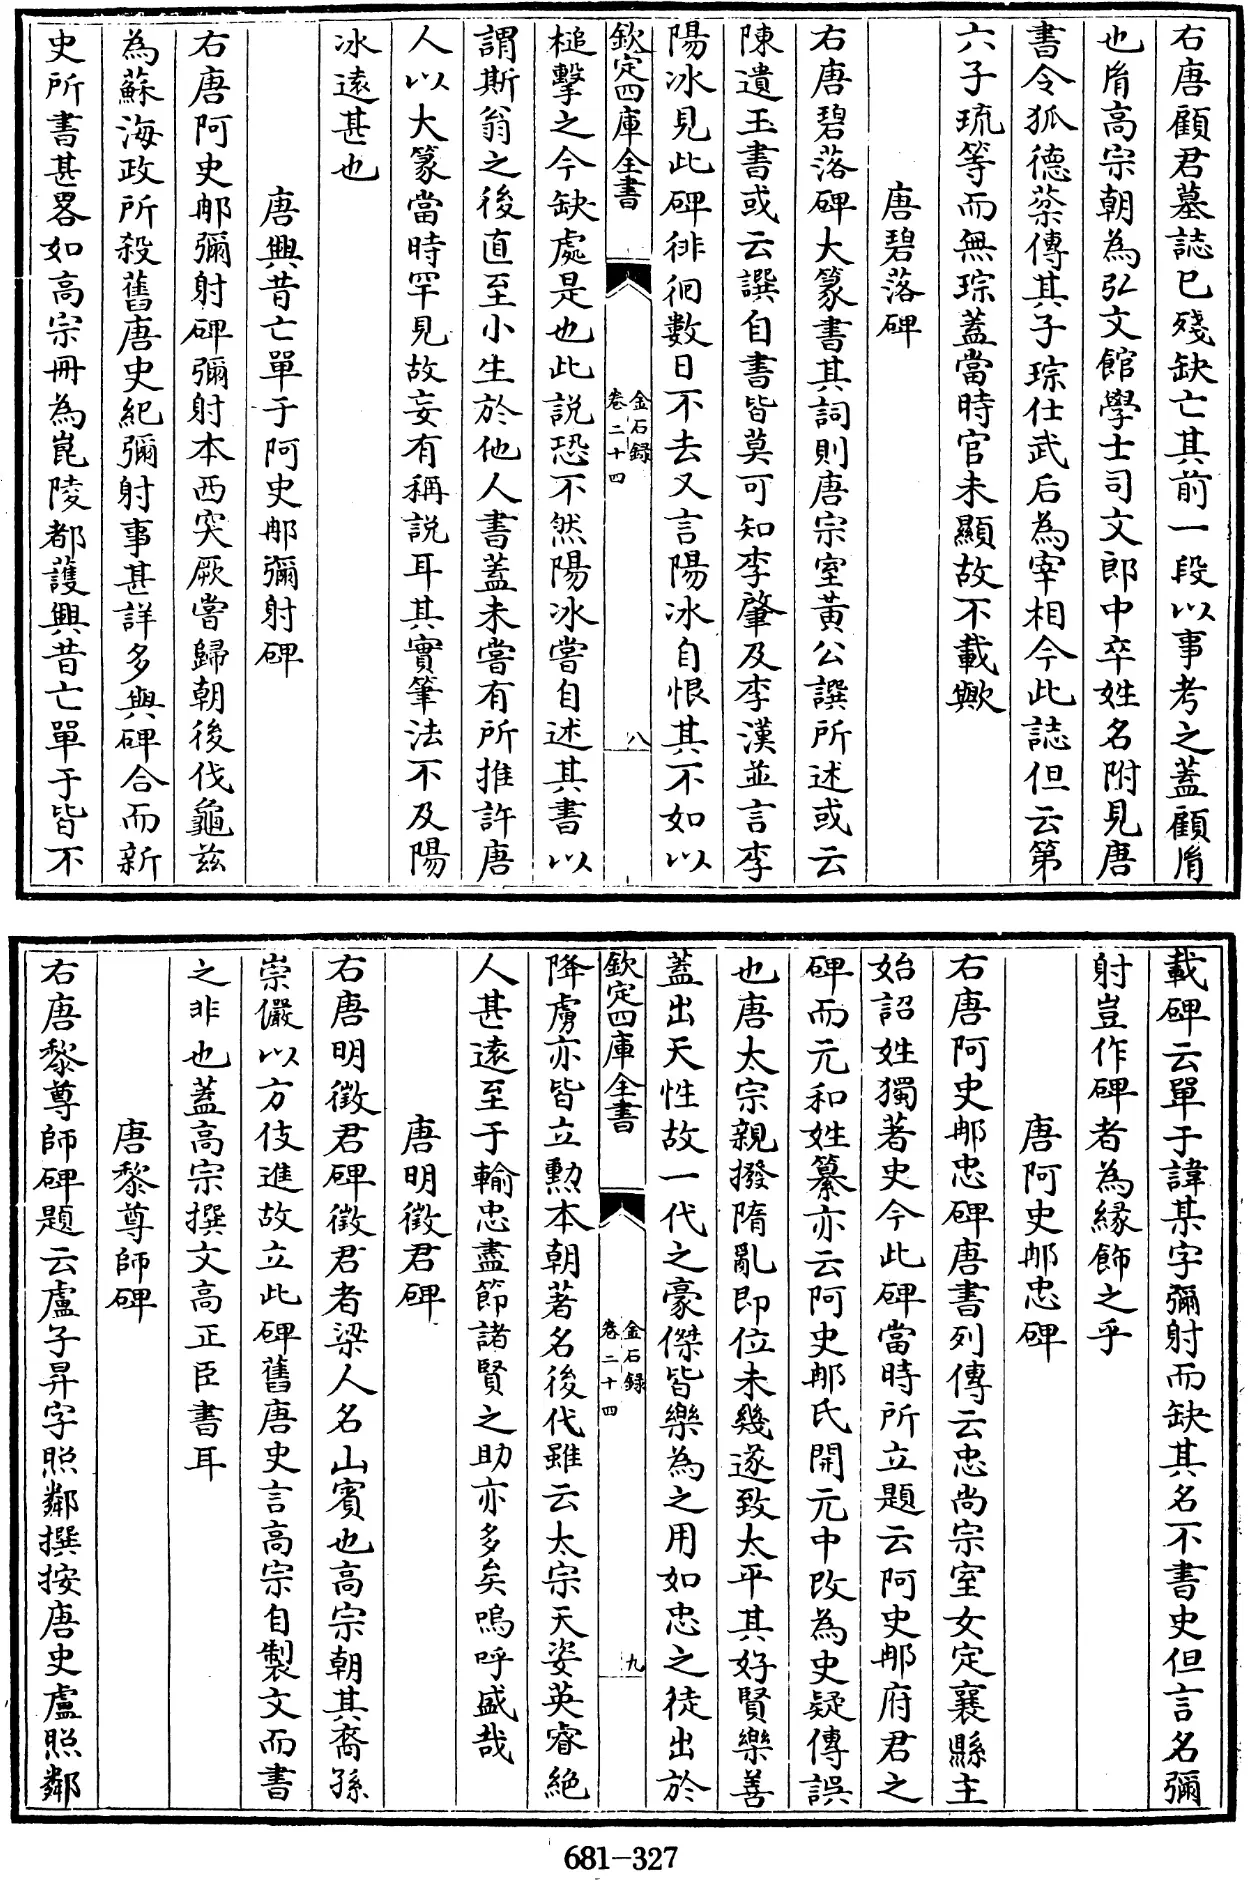 右唐顧君墓誌已殘缺亡其前一段以事考之蓋顧胤
也胤高宗朝為弘文館學士司文郎中卒姓名附見唐
書令狐德棻傳其子琮仕武后為宰相今此誌但云第
六子琉等而無琮蓋當時官未顯故不載歟
唐碧落碑
右唐碧落碑大篆書其詞則唐宗室黃公譔所述或云
陳遺玉書或云譔自書皆莫可知李肇及李漢並言李
陽冰見此碑徘徊數日不去又言陽冰自恨其不如以
欽定四庫全書
金石録
卷二十四
八
槌擊之今缺處是也此説恐不然陽冰嘗自述其書以
謂斯翁之後直至小生於他人書蓋未嘗有所推許唐
人以大篆當時罕見故妄有稱説耳其實筆法不及陽
冰遠甚也
唐興昔亡單于阿史𨚗彌射碑
右唐阿史𨚗彌射碑彌射本西突厥嘗歸朝後伐龜茲
為蘇海政所殺舊唐史紀彌射事甚詳多與碑合而新
史所書甚畧如高宗冊為崑陵都護興昔亡單于皆不
載碑云單于諱某字彌射而缺其名不書史但言名彌
射豈作碑者為緣飾之乎
唐阿史𨚗忠碑
右唐阿史𨚗忠碑唐書列傳云忠尚宗室女定襄縣主
始詔姓獨著史今此碑當時所立題云阿史𨚗府君之
碑而元和姓纂亦云阿史𨚗氏開元中改為史疑傳誤
也唐太宗親撥隋亂即位未幾遂致太平其好賢樂善
蓋出天性故一代之豪傑皆樂為之用如忠之徒出於
欽定四庫全書
金石録
卷二十四
九
降虜亦皆立勲本朝著名後代雖云太宗天姿英睿絶
人甚遠至于輸忠盡節諸賢之助亦多矣嗚呼盛哉
唐明徵君碑
右唐明徵君碑徵君者梁人名山賓也高宗朝其裔孫
崇儼以方伎進故立此碑舊唐史言高宗自製文而書
之非也蓋高宗撰文高正臣書耳
唐黎尊師碑
右唐黎尊師碑題云盧子昇字照鄰撰按唐史盧照鄰
681-327